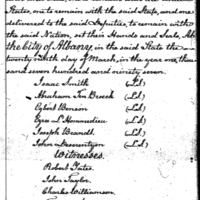 State, one to remain with the said State, and one
delivered to the said Deputies, to remain with
the said Nation, set their Hands and Seals, At
the City of Albany, in the said State the
twenty ninth day of March, in the year one thou-
sand seven hundred and ninety seven.
Isaac Smith (L.S.)
Abraham Ten Broeck (L.S.)
Egbert Benson (L.S.)
Ezra L'Hommedieu (L.S.)
Joseph Brandt (L.S.)
John Deserontyon (L.S.)
Witnesses.
Robert Yates.
John Taylor.
Charles Williamson.